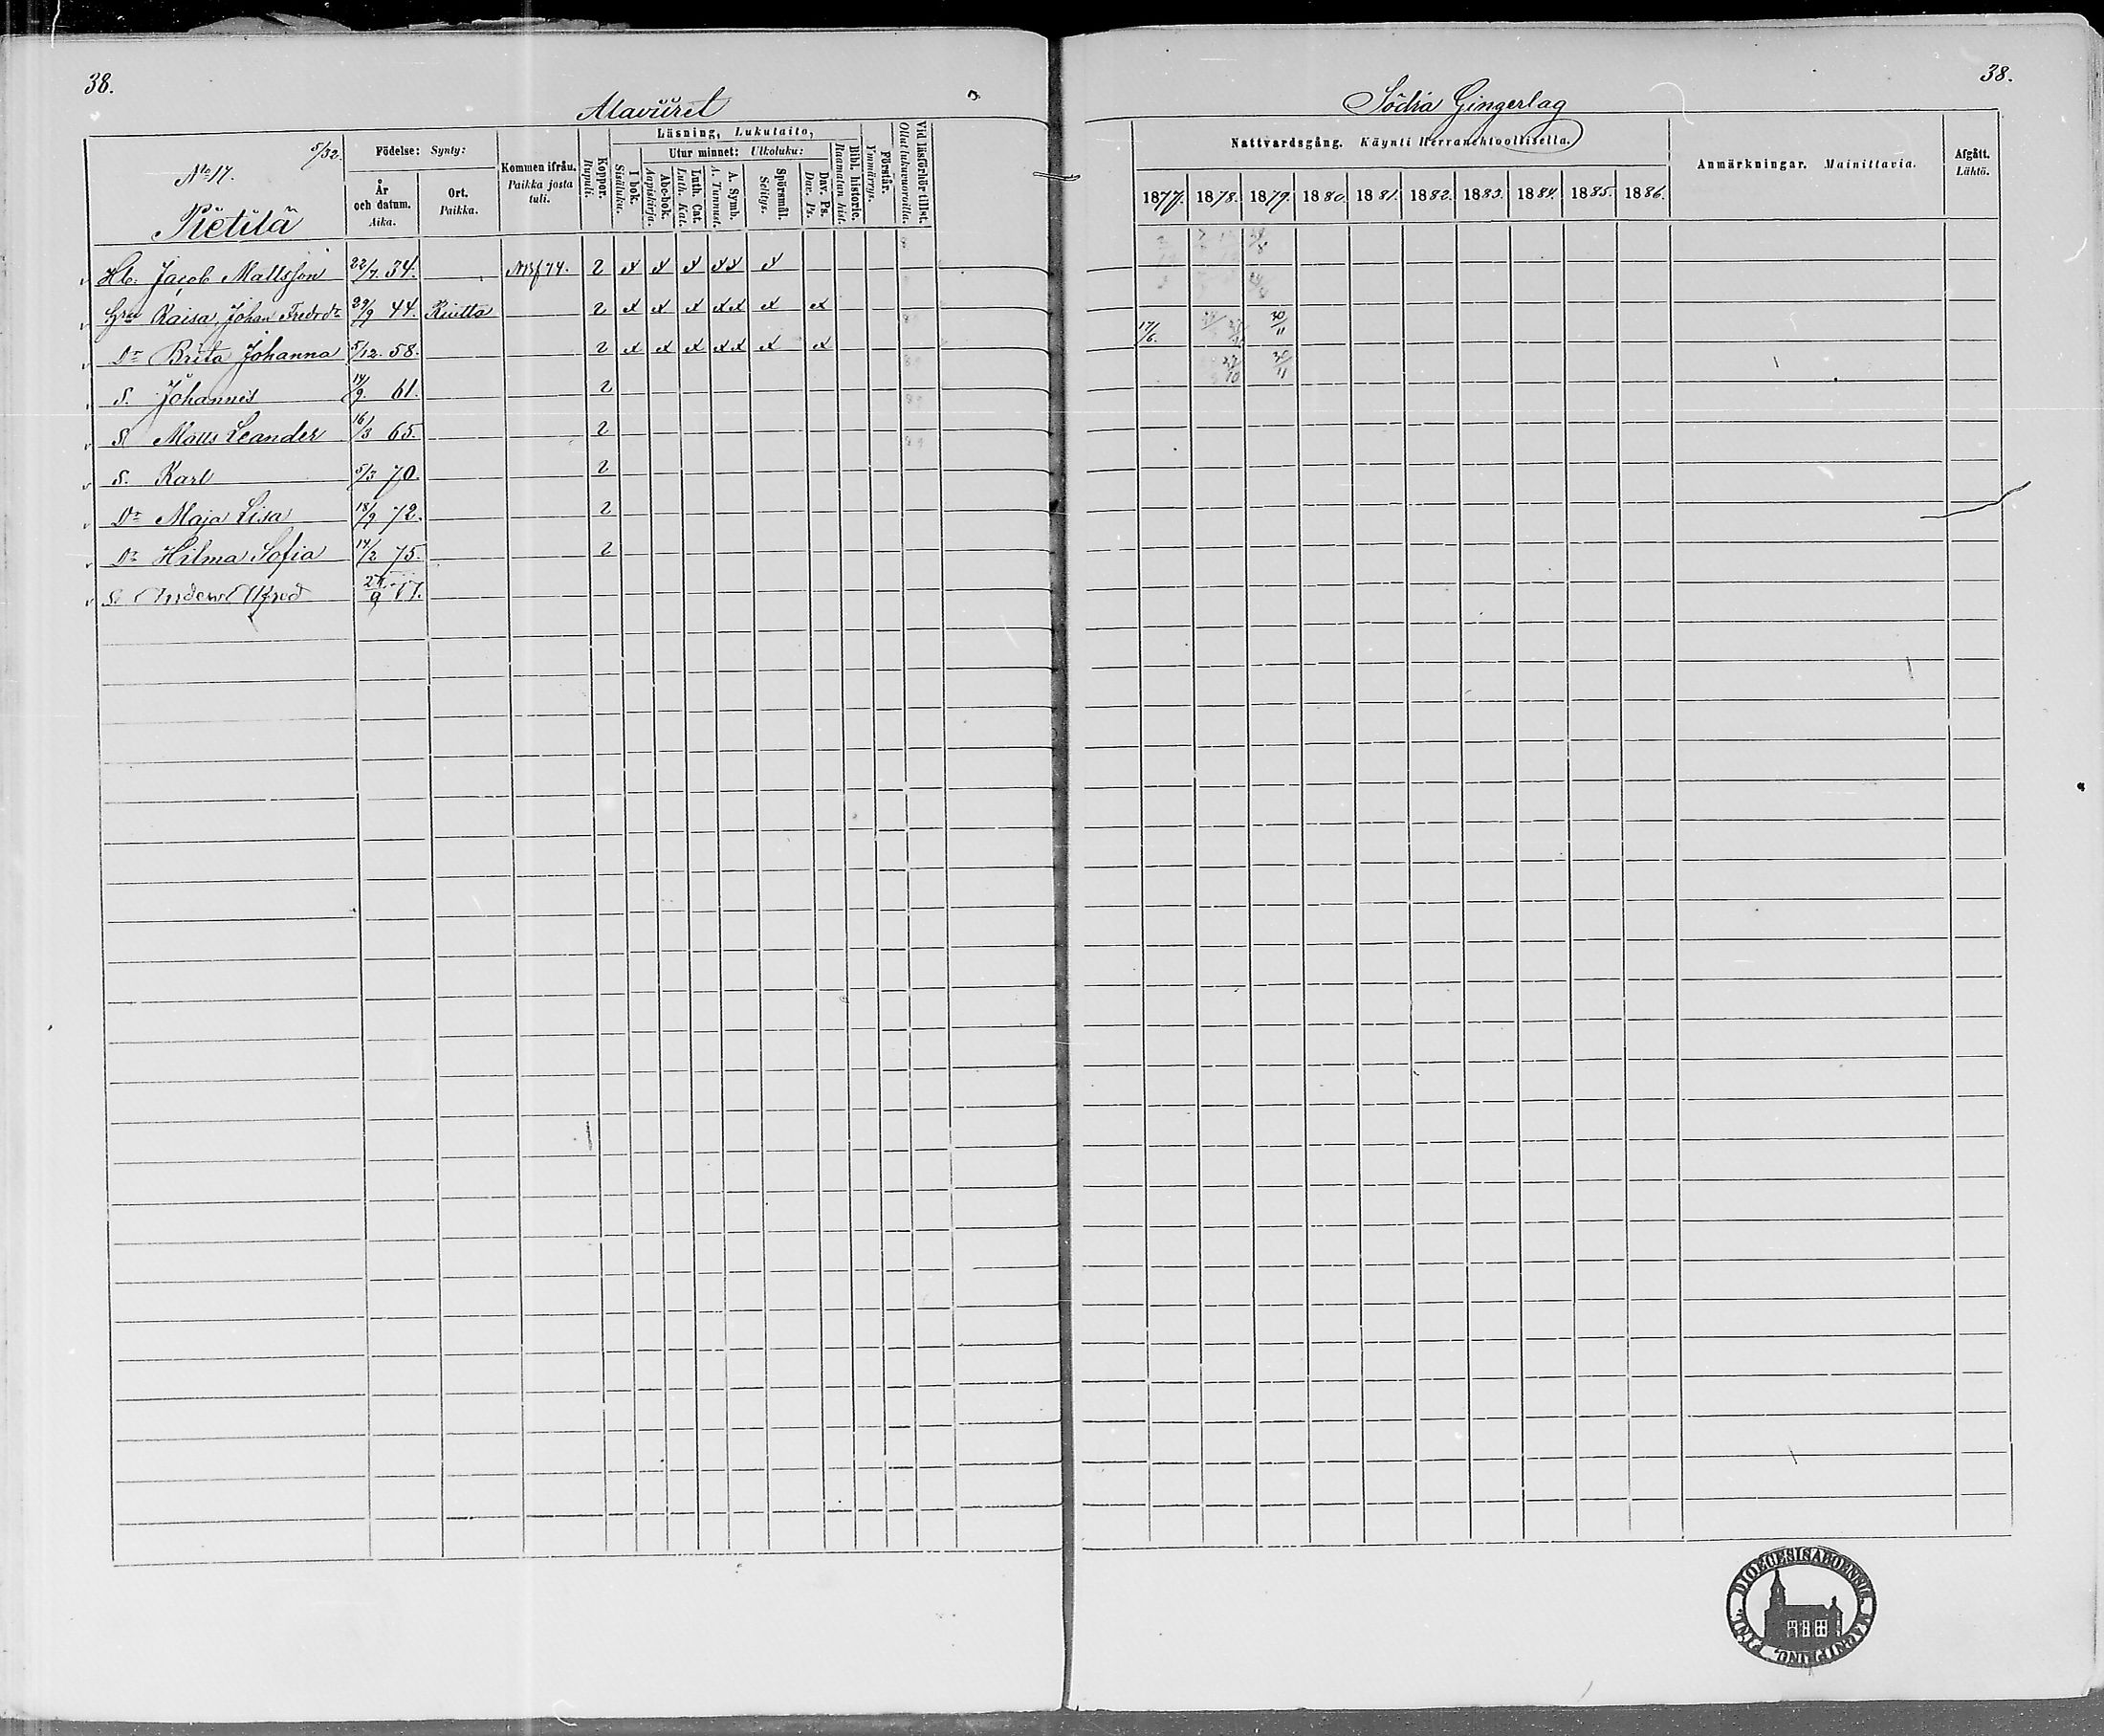 38.
Alaviiret
No 17.
5/32.
Pietilä
Födelse: Synty:
År och datum. Aika.
Ort. Paikka.
Kommen ifrån. Paikka josta tuli.
Koppor. Rupuli.
Läsning, Lukutaito,
I bok. Sisäluku.
Utur minnet: Ulkoluku:
Abc-bok. Aapiskirja.
Luth. Cat. Luth. Kat.
A. Symb. A. Tunnust.
Spörsmål. Selitys.
Dav. Ps. Dav. Ps.
Bibl. historie. Raamatun hist.
Förstår. Ymmärrys.
Vid läsförhör tillst. Ollut lukuvuoroilla.
Hb. Jacob Mattsson 22/7. 34. 2 x x x xx x
Hru Kaisa, Johan Fredrdr 29/9 44. 2 x x x xx x x
Dr Brita Johanna 5/12. 58. 2 x x x xx x x
S. Johannes 14/9. 61. 2
S. Matts Leander 16/3 65. 2
S. Karl 5/3 70. 2
Dr Maja Lisa 18/9 72. 2
Dr Hilma Sofia 14/2 75. 2
S. Anders Alfred
38.
Södra Gingerlag
Nattvardsgång. Käynti Herranehtoollisella.
1877. 1878. 1879. 1880. 1881. 1882. 1883. 1884. 1885. 1886.
Anmärkningar. Mainittavia.
Afgått. Lähtö.
17/6. 30/11
27/10 30/11
DIOECESIS ABOENSIS. MAGNI PRINC. FINL.